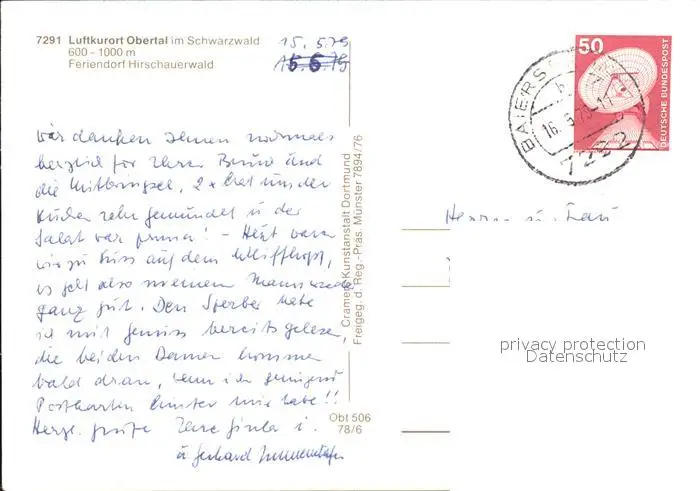 7291 Luftkurort Obertal im Schwarzwald
600 - 1000 m
Feriendorf Hirschauerwald
15. 5. 79
15 6 79
wir danken Ihnen nochmals
herzlich für Ihren Besuch und
die Mitbringsel, 2 x hat uns der
Kuchen sehr gemundet u der
Salat war prima! - Heut waren
wir zu Fuss auf dem Schliffkopf,
es geht also meinem Mann wieder
ganz gut. Den Sperber habe
ich mit Genuss bereits gelesen,
die beiden Damen kommen
bald dran, wenn ich genügend
Postkarten hinter mir habe!!
Herzl. Grüße Ihre Gisela
u Gerhard
Cramers Kunstanstalt Dortmund
Freigeg. d. Reg.-Präs. Münster 7894/76
Obt 506
78/6
50
DEUTSCHE BUNDESPOST
BAIERS
16. 5. 79-11
7292
Herrn u. Frau
privacy protection
Datenschutz